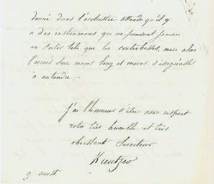 donné dans l'orchestre attendu qu'il y
a des instruments qui ne peuvent jamais
tels que les contrebasses, mais alors
moins long et moins désagréable
à entendre.
J'ai l'honneur d'être avec respect
votre très humble et très
obéissant Serviteur
9 août